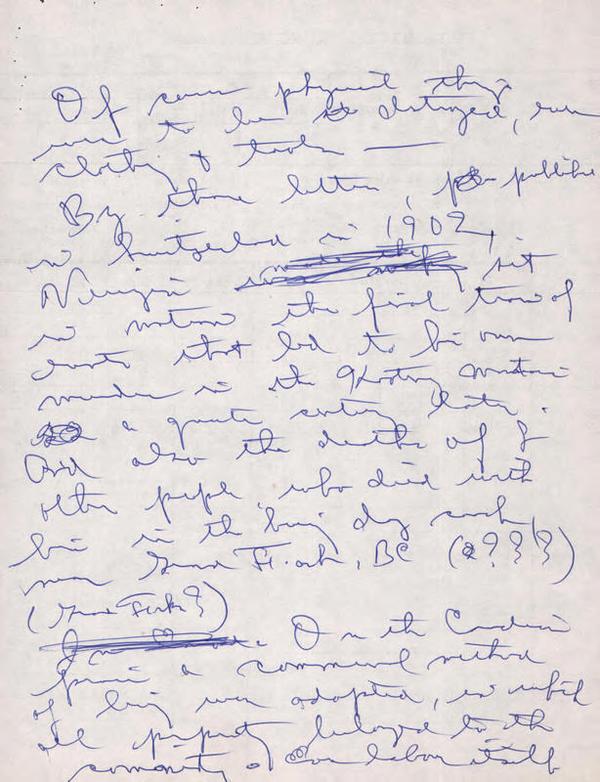 Of course physical things
were to be destroyed, even
clothing & tools —
By these letters, publishe
in Switzerland in 1902,
Verigin set
in motion the final train of
events that led to his own
murder in the Kootenay mountains
a quarter century later.
And also the deaths of 8
other people who died with
him in the burning day coach
near Grand Forks, BC (????)
(Grand Forks?)
On the Canadian
prairie a communal method
of living was adopted, in which
all property belonged to the
community. labor itself